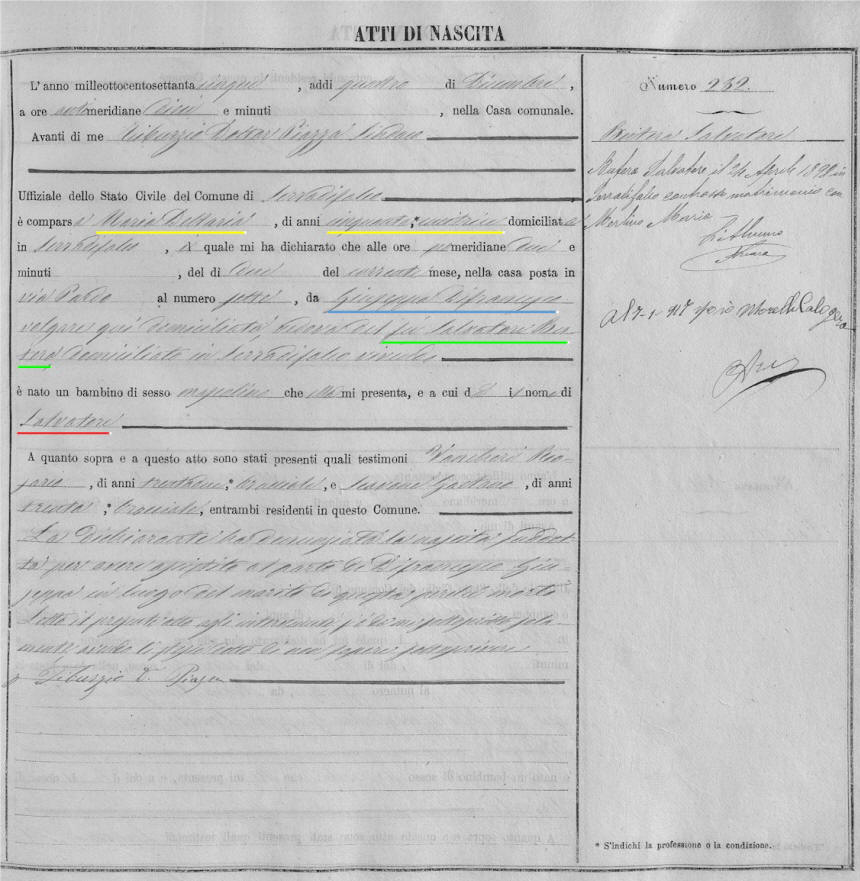 ATTI DI NASCITA
L'anno milleottocentosettanta cinque, addi quattro di Dicembre,
a ore antimeridiane dieci e minuti , nella Casa comunale.
Avanti di me Tiburzio Dottor Piazza Sindaco
Uffiziale dello Stato Civile del Comune di Serradifalco
è comparsa Maria Dettaria, di anni cinquanta,* levatrice domiciliata
in Serradifalco, la quale mi ha dichiarato che alle ore pomeridiane due e
minuti , del dì due del corrente mese, nella casa posta in
via Paldo al numero sette, da Giuseppa Difrancesco
qui domiciliata, vedova del fu Salvatore Bu-
tera domiciliato in Serradifalco vivendo
è nato un bambino di sesso mascolino che mi presenta, e a cui dà il nome di
Salvatore
A quanto sopra e a questo atto sono stati presenti quali testimoni Vancheri Ro-
sario, di anni trentuno,* bracciale, e Gaetano, di anni
trenta,* bracciale, entrambi residenti in questo Comune.
La dichiarante ha denunziato la nascita suddet-
ta per avere assistito al parto di Difrancesco Giu-
seppa in luogo del marito di questa perché morto
Letto il presente atto agli intervenuti si è da me sottoscritto sola-
mente avendo gli stessi detto di non sapere sottoscrivere
Tiburzio D. Piazza
Numero 232.
Butera Salvatore
Butera Salvatore, il 24 Aprile 1898 in
Serradifalco contrasse matrimonio con
Merlino Maria
Al 7-1-917 sposò Morelli Calogera
* S'indichi la professione o la condizione.